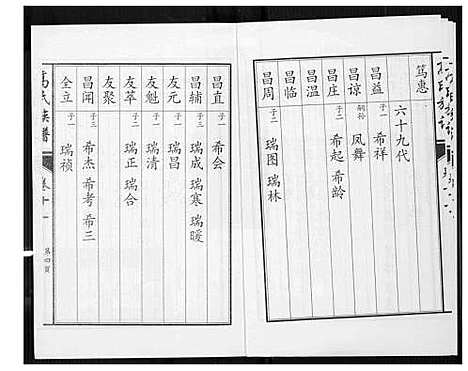 笃惠
六十九代
昌益 子一 希祥
昌谅 嗣孙 凤舞
昌庄 子二 希起 希龄
昌温
昌临
昌周 子二 瑞图 瑞林
昌直 子一 希会
昌辅 子三 瑞成 瑞寒 瑞暖
友元 子一 瑞昌
友魁 子一 瑞清
友萃 子二 瑞正 瑞合
友聚
昌开 子三 希杰 希考 希三
全立 子一 瑞祯
氏族谱
卷十一
第四頁